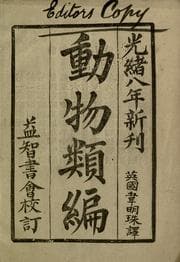 Editors Copy
光緒八年新刊
動物類編
英國韋明珠譯
益智書會校訂